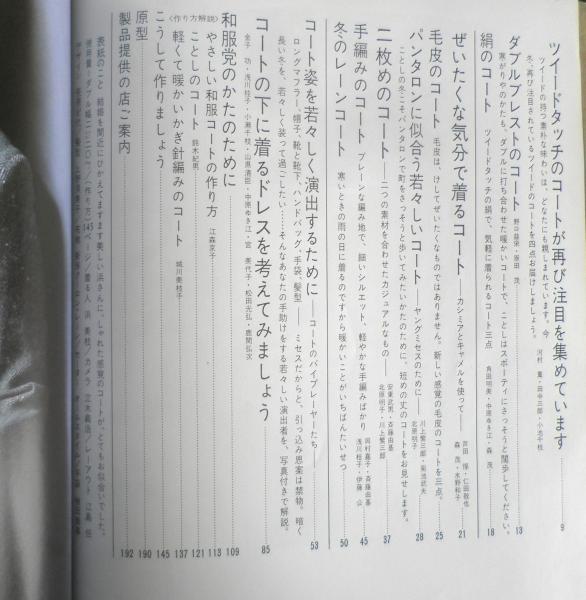 ツイードタッチのコートが再び注目を集めています 9
ツイードの持つ素朴な味わいは、どなたにも親しまれています。今
冬、再び注目されているツイードのコートを四点お届けしましょう。
河村 薫・田中三郎・小池千枝
ダブルブレストのコート 野口益栄・原田 茂 13
寒がりやのかたも、ダブルに打ち合わせた暖かいコートで、ことしはスポーティにさっそうと闊歩してください。
絹のコート ツイードタッチの絹で、気軽に着られるコート三点 角田明美・中原ゆき江・森 茂 18
ぜいたくな気分で着るコート――カシミアとキャメルを使って―― 21
芦田 惇・仁田敢也
森 茂・水野和子
毛皮のコート 毛皮は、けしてぜいたくなものではありません。新しい感覚の毛皮のコートを三点。 25
パンタロンに似合う若々しいコート――ヤングミセスのために―― 28
川上繁三郎・菊池武夫
北原明子
ことしの冬こそパンタロンで町をさっそうと歩いてみたいかたのために、短めの丈のコートをお見せします。
二枚めのコート――二つの素材を合わせたカジュアルなもの―― 37
安東武男・斉藤由基
北原明子・川上繁三郎
手編みのコート プレーンな編み地で、細いシルエット、軽やかな手編みばかり 45
岡村嘉子・斉藤由基
浅川桂子・伊藤 公
冬のレーンコート 寒いときの雨の日に着るのですから暖かいことがいちばんたいせつ 50
コート姿を若々しく演出するために――コートのバイプレーヤーたち―― 53
ロングマフラー、帽子、靴と靴下、ハンドバッグ、手袋、髪型――ミセスだからと、引っ込み思案は禁物。暗く
長い冬を、若々しく装って過ごしたい……そんなあなたの手助けをする若々しい演出者を、写真付きで解説。
コートの下に着るドレスを考えてみましょう 85
金子 功・浅川桂子・小瀬千枝・山県清臣・中原ゆき江・宮 美代子・松田光弘・鹿間弘次
和服党のかたのために 109
〈作り方解説〉
やさしい和服コートの作り方 江森京子 113
ことしのコート 鈴木紀男 121
軽くて暖かいかぎ針編みのコート 城川美枝子 137
こうして作りましょう 145
原型 190
製品提供の店ご案内 192
表紙のこと 結婚を間近にひかえてますます美しい浜さんに、しゃれた感覚のコートが、とてもお似合いでした。